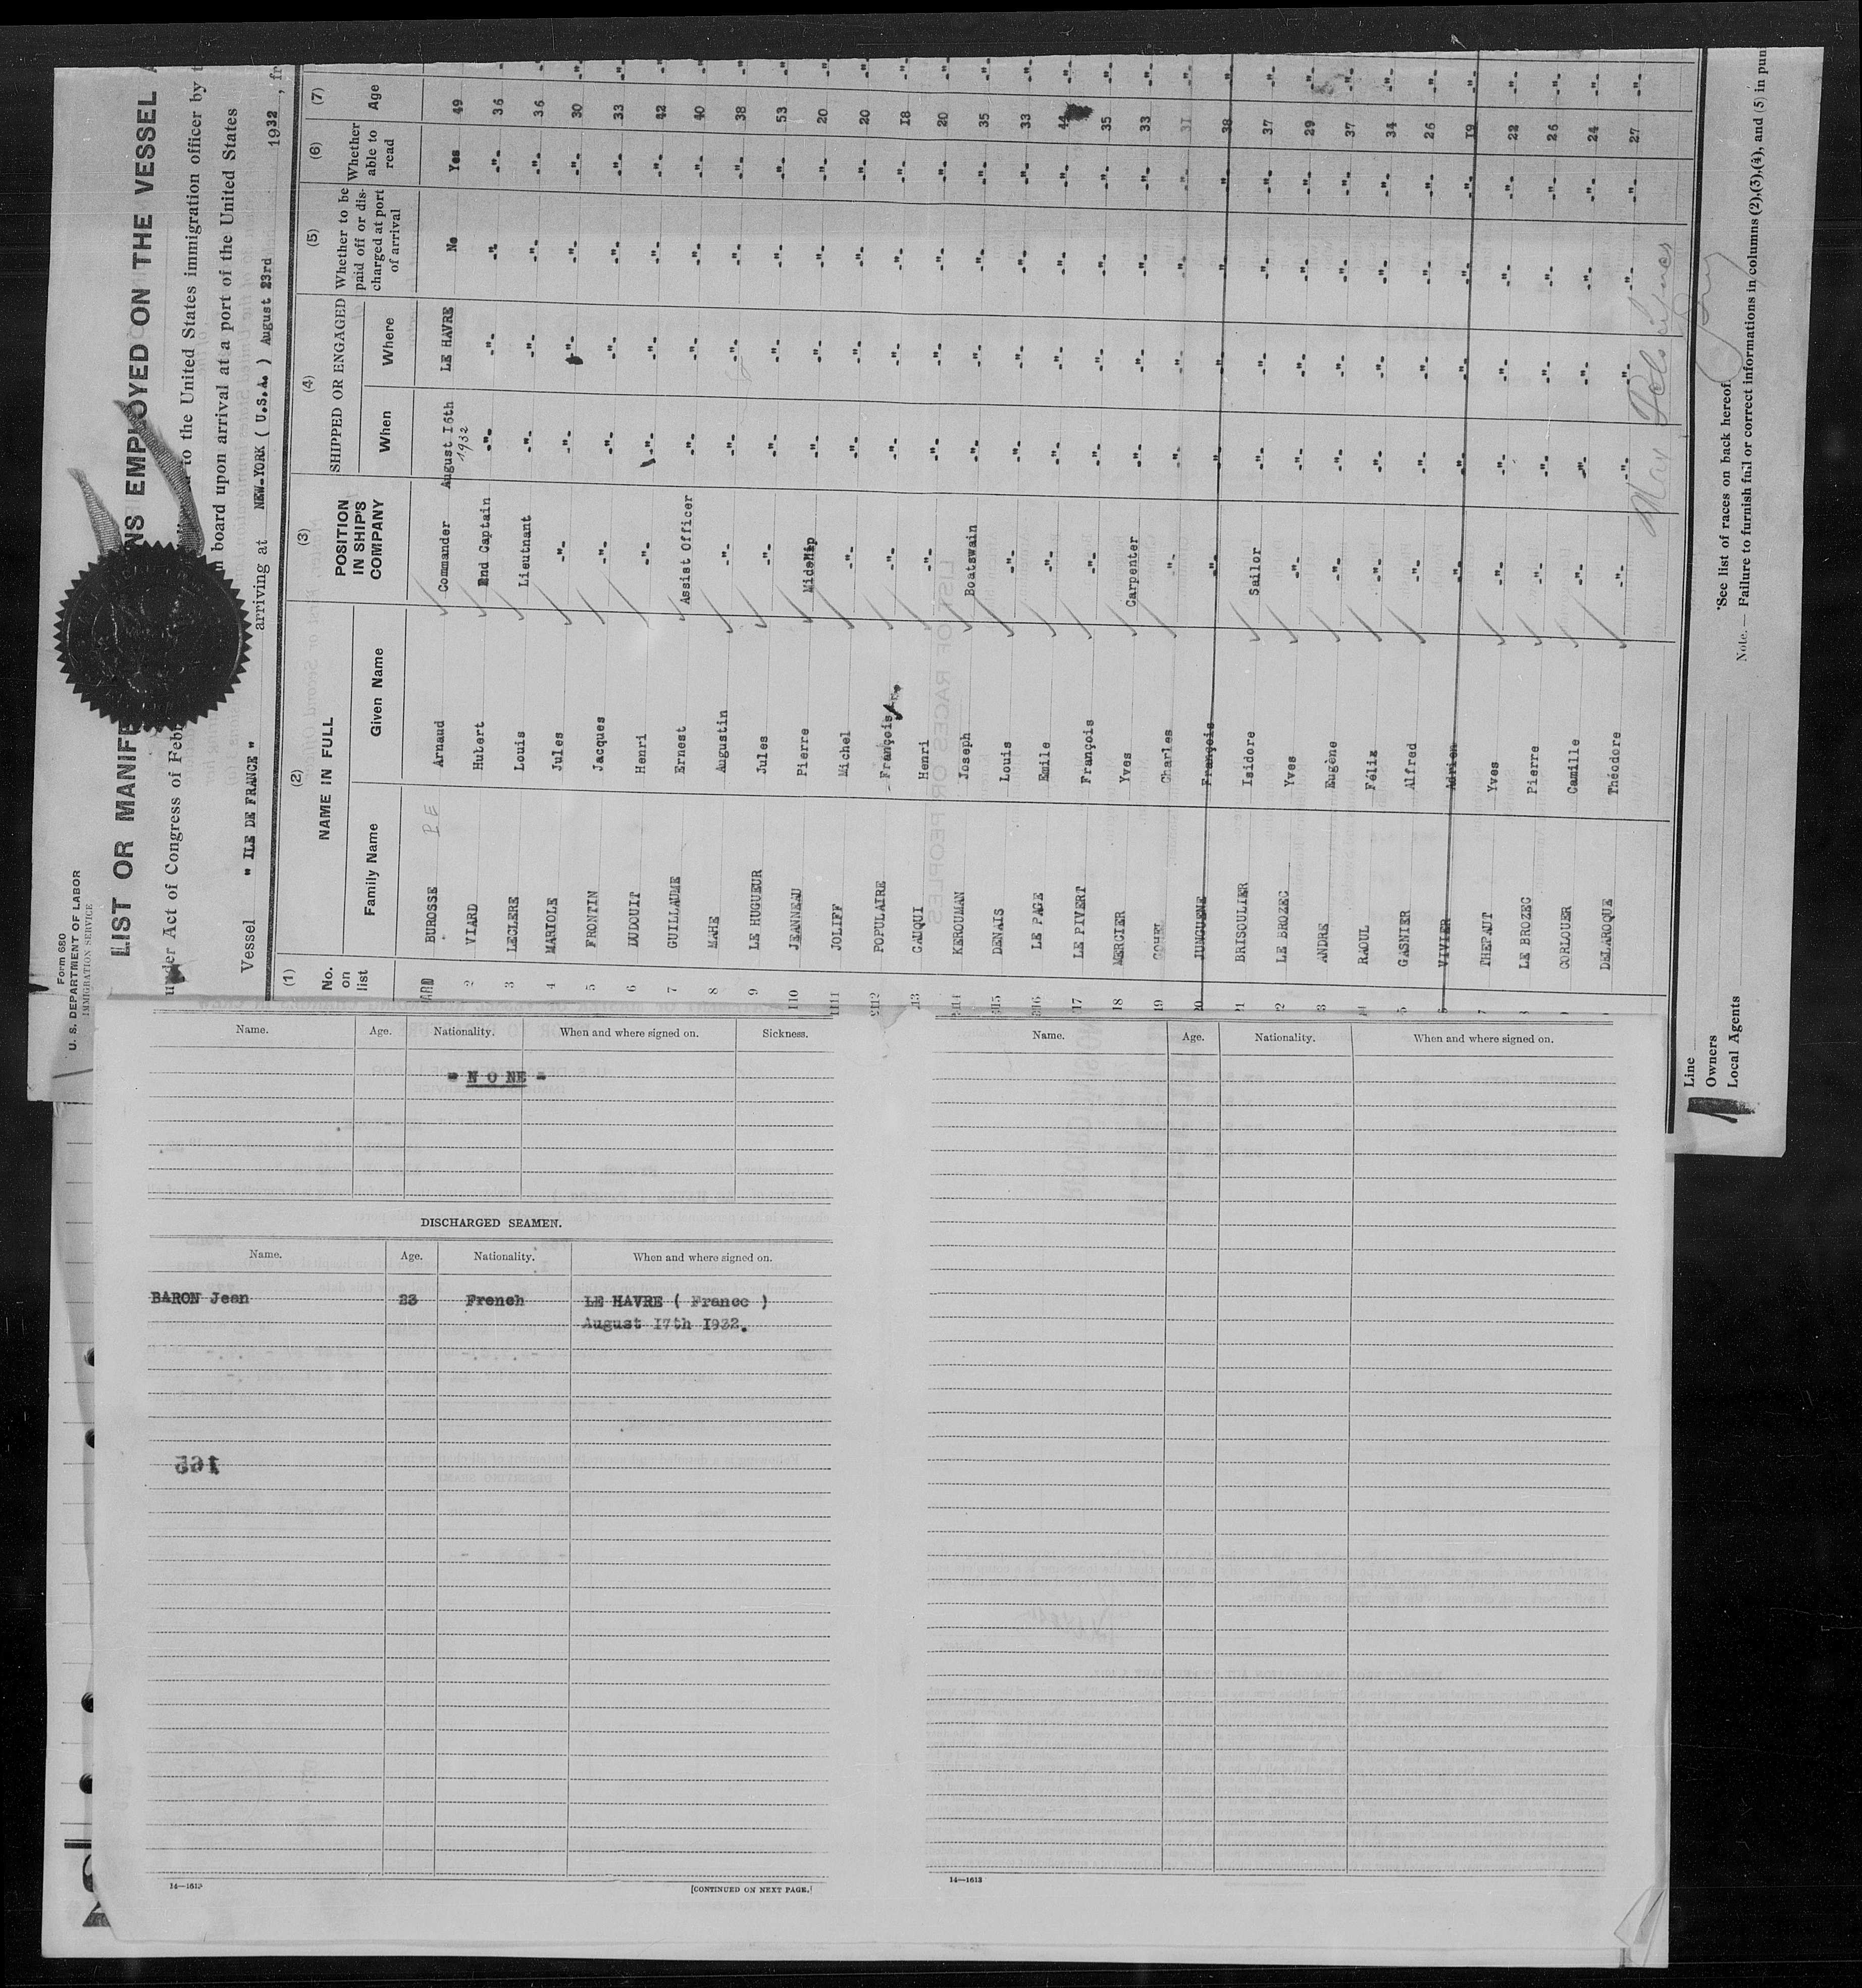 Form 680
U. S. DEPARTMENT OF LABOR
IMMIGRATION SERVICE
LIST OR MANIFE NS EMPLOYED ON THE VESSEL A
under Act of Congress of Feb to the United States immigration officer by t
board upon arrival at a port of the United States
Vessel " ILE DE FRANCE " arriving at NEW-YORK ( U.S.A. ) August 23rd 1932 , fr
(1) (2) (3) (4) (5) (6) (7)
No. on list NAME IN FULL Family Name Given Name POSITION IN SHIP'S COMPANY SHIPPED OR ENGAGED When Where Whether to be paid off or discharged at port of arrival Whether able to read Age
BUROSSE P E Arnaud Commander August I6th 1932 LE HAVRE No Yes 49
2 VIARD Hubert 2nd Captain -"- -"- -"- -"- 36 -"-
3 LECLERE Louis Lieutnant -"- -"- -"- -"- 36 -"-
4 MARIOLE Jules -"- -"- -"- -"- -"- 30 -"-
5 FRONTIN Jacques -"- -"- -"- -"- -"- 33 -"-
6 DUDOUIT Henri -"- -"- -"- -"- -"- 42 -"-
7 GUILLAUME Ernest Assist Officer -"- -"- -"- -"- 40 -"-
8 MAHE Augustin -"- -"- -"- -"- -"- 38 -"-
9 LE HUGUEUR Jules -"- -"- -"- -"- -"- 53 -"-
10 JEANNEAU Pierre Midship -"- -"- -"- -"- 20 -"-
11 JOLIFF Michel -"- -"- -"- -"- -"- 20 -"-
12 POPULAIRE François -"- -"- -"- -"- -"- I8 -"-
13 CAUQUI Henri -"- -"- -"- -"- -"- 20 -"-
14 KEROUMAN Joseph Boatswain -"- -"- -"- -"- 35 -"-
15 DENAIS Louis -"- -"- -"- -"- -"- 33 -"-
16 LE PAGE Emile -"- -"- -"- -"- -"- 44 -"-
17 LE PIVERT François -"- -"- -"- -"- -"- 35 -"-
18 MERCIER Yves Carpenter -"- -"- -"- -"- 33 -"-
19 COHEL Charles -"- -"- -"- -"- -"- 31 -"-
20 JUNGUENE François -"- -"- -"- -"- -"- 38 -"-
21 BRISOULIER Isidore Sailor -"- -"- -"- -"- 37 -"-
2 LE BROZEC Yves -"- -"- -"- -"- -"- 29 -"-
3 ANDRE Eugène -"- -"- -"- -"- -"- 37 -"-
4 RAOUL Félix -"- -"- -"- -"- -"- 34 -"-
5 GASNIER Alfred -"- -"- -"- -"- -"- 26 -"-
6 VIVIER Adrien -"- -"- -"- -"- -"- I9 -"-
7 THEPAUT Yves -"- -"- -"- -"- -"- 22 -"-
8 LE BROZEC Pierre -"- -"- -"- -"- -"- 26 -"-
CORLOUER Camille -"- -"- -"- -"- -"- 24 -"-
DELAROQUE Théodore -"- -"- -"- -"- -"- 27 -"-
Line
Owners
Local Agents
*See list of races on back hereof.
Note. — Failure to furnish full or correct informations in columns (2),(3),(4), and (5) in pun
Name. Age. Nationality. When and where signed on. Sickness.
- N O NE -
DISCHARGED SEAMEN.
Name. Age. Nationality. When and where signed on.
BARON Jean 23 French LE HAVRE ( France )
August I7th I932.
165
14—1613
[CONTINUED ON NEXT PAGE.]
Name. Age. Nationality. When and where signed on.
14—1613